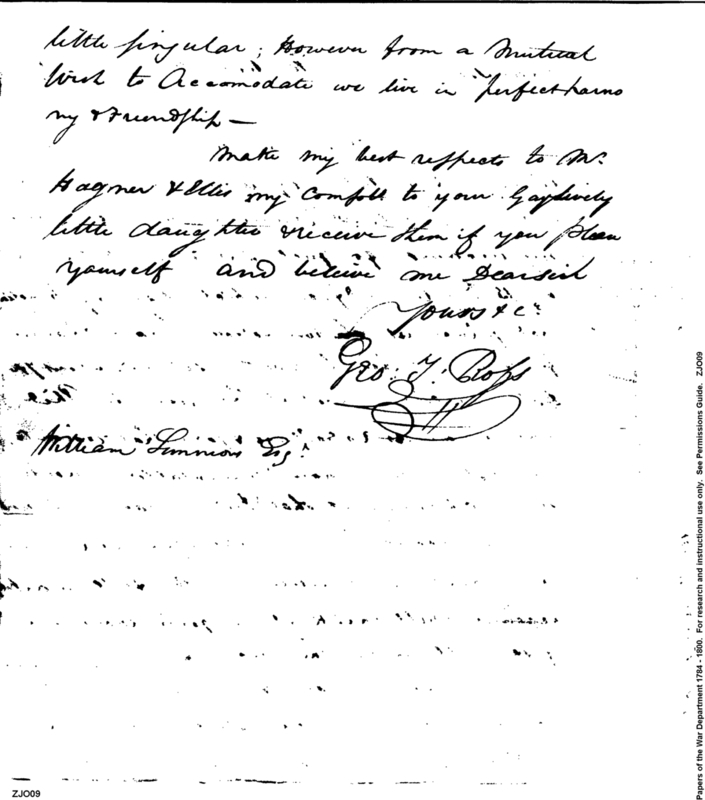 little singular; However from a Mutual
Wish to Accomodate we live in perfect harmo
ny & Friendship —
Make my best respects to Mr.
Hagner & Ellis my Complt to your Gay lively
little daughter & receive them if you please
yourself and beleive me Dear Sir
Yours &c.
Geo. T. Ross
William Simmons Esq.
ZJO09
Papers of the War Department 1784 - 1800. For research and instructional use only. See Permissions Guide. ZJO09